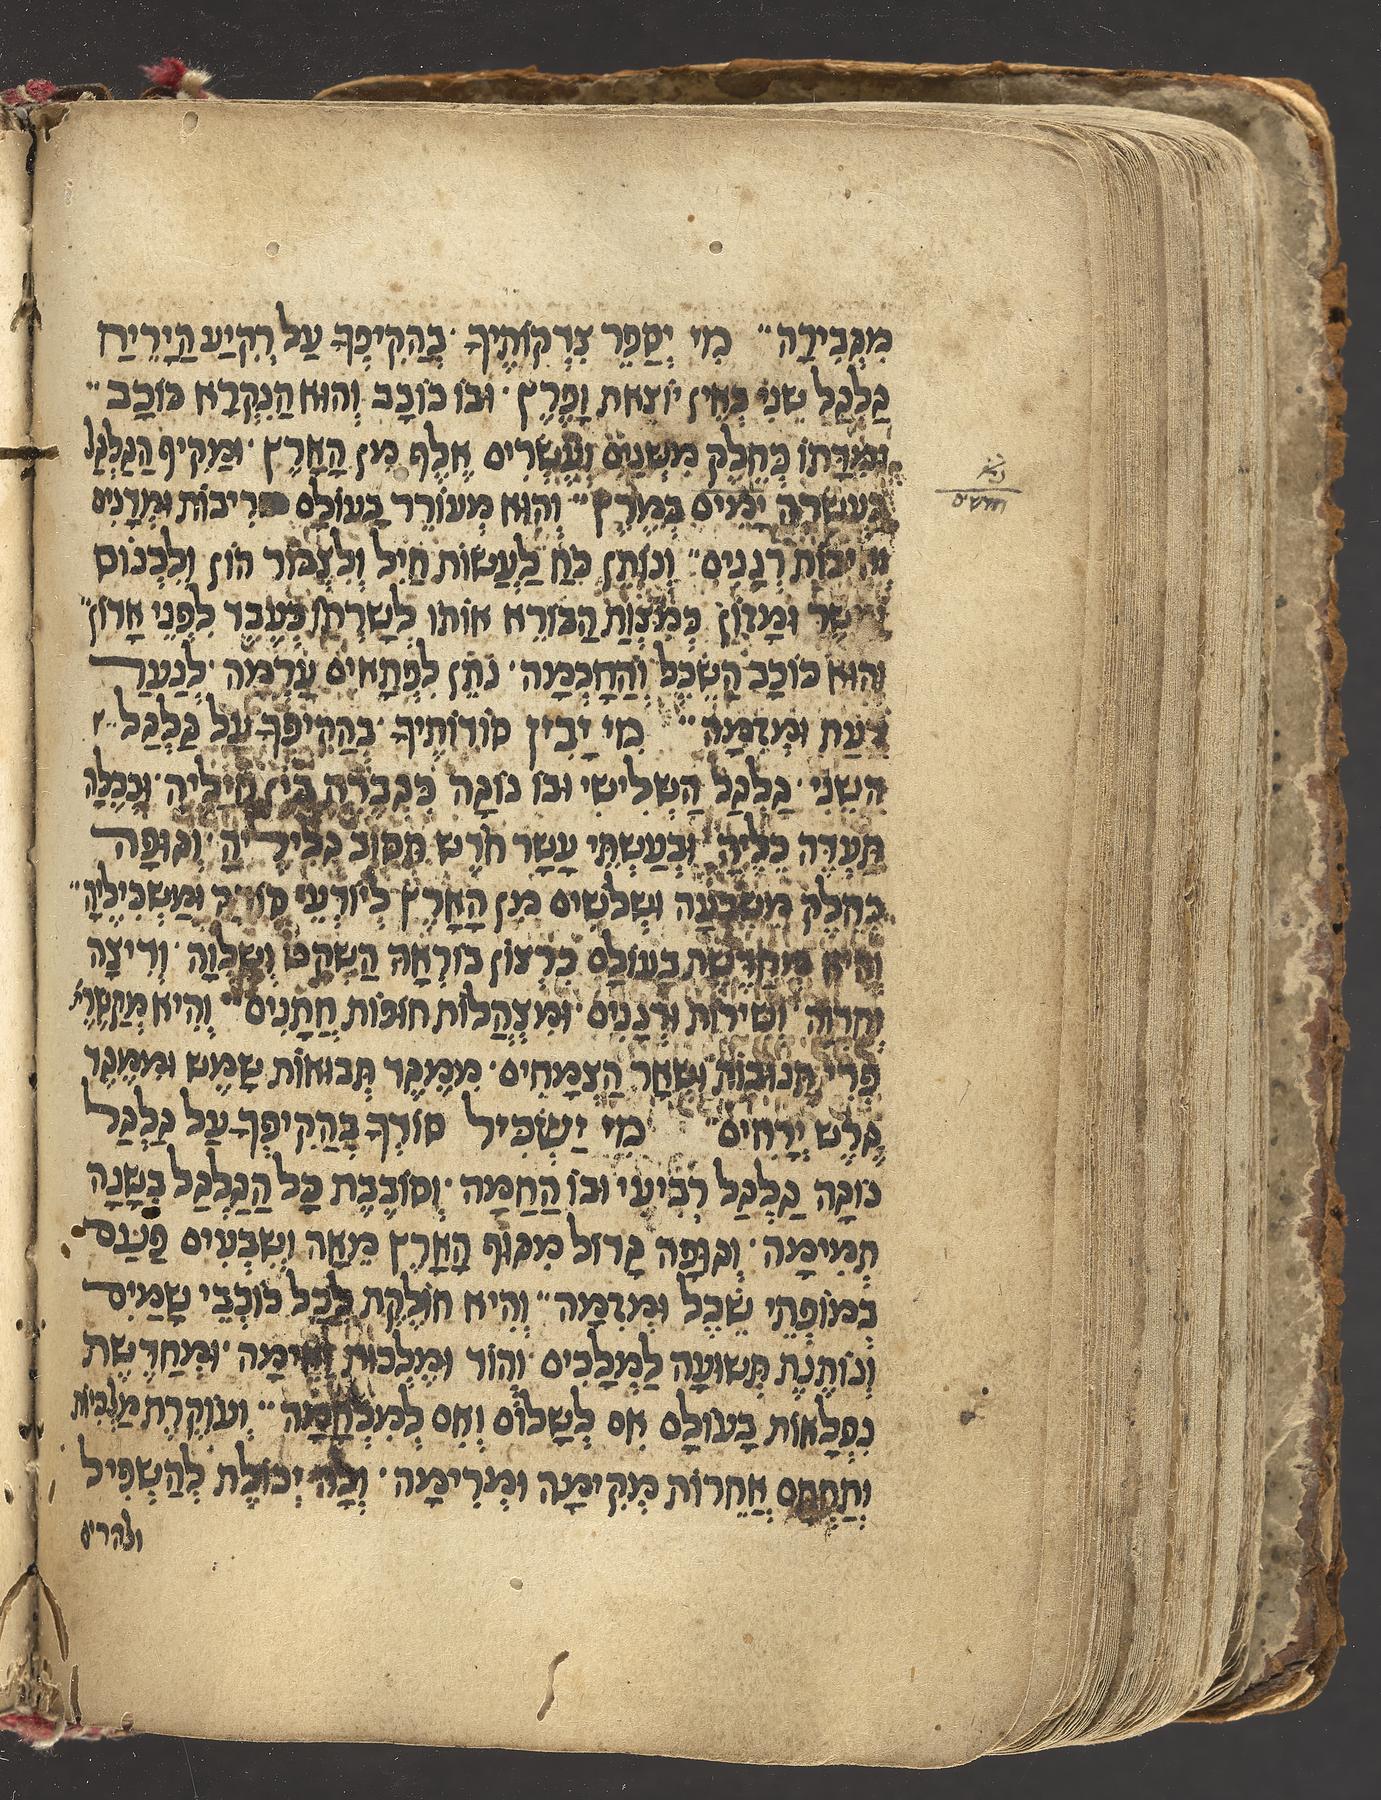 מִגְּבִירָה״ מִי יְסַפֵּר צִדְקוֹתֶיךָ ׳ בְּהַקִּיפְךָ עַל רְקִיעַ הַיָּרֵיחַ
גַּלְגַּל שֵׁנִי בְּאֵין יוֹצֵאת וָפֶרֶץ ׳ וּבוֹ כּוֹכָב וְהוּא הַנִּקְרָא כּוֹכָב״
וּמִדָּתוֹ כְּחֵלֶק מִשְּׁנַיִם וְעֶשְׂרִים אֶלֶף מִן הָאָרֶץ ׳ וּמַקִּיף הַגַּלְגַּל
בַּעֲשָׂרָה יָמִים בְּמֶרֶץ״ וְהוּא מְעוֹרֵר בָּעוֹלָם מְרִיבוֹת וּמְדָנִים
רְגָנִים״ וְנוֹתֵן כֹּחַ לַעֲשׂוֹת חַיִל וְלִצְבּוֹר הוֹן וְלִכְנוֹס
וּמָזוֹן כְּמִצְוַת הַבּוֹרֵא אוֹתוֹ לְשָׁרְתוֹ כְּעֶבֶד לִפְנֵי אָדוֹן״
וְהוּא כּוֹכַב הַשֵּׂכֶל וְהַחָכְמָה ׳ נֹתֵן לִפְתָאִים עָרְמָה ׳ לְנַעַר
דַּעַת וּמְזִמָּה״ מִי יָבִין סוֹדוֹתֶיךָ ׳ בְּהַקִּיפְךָ עַל גַּלְגַּל
הַשֵּׁנִי ׳ גַּלְגַּל הַשְּׁלִישִׁי וּבוֹ נוֹגַהּ כִּגְבֶרֶת בֵּין חֲיָלֶיהָ ׳ וּכְכַלָּה
תַּעְדֶּה כֵלֶיהָ ׳ וּבְעַשְׁתֵּי עָשָׂר חֹדֶשׁ תִּסּוֹב גְּלִילֶיהָ ׳ וְגוּפָהּ
כְּחֵלֶק מִשִּׁבְעָה וּשְׁלֹשִׁים מִן הָאָרֶץ לְיוֹדְעֵי סוֹדָהּ וּמַשְׂכִּילֶיהָ״
וְהִיא מְחַדֶּשֶׁת בָּעוֹלָם כִּרְצוֹן בּוֹרְאָהּ הַשְׁקֵט וְשַׁלְוָה ׳ וְדִיצָה
וְחֶדְוָה ׳ וְשִׁירוֹת וּרְנָנִים ׳ וּמִצְהֲלוֹת חוּפּוֹת חֲתָנִים״ וְהִיא מְקַשֶּׁרֶת
פְּרִי תְנוּבוֹת וּשְׁאָר הַצְּמָחִים ׳ מִמֶּגֶד תְּבוּאוֹת שָׁמֶשׁ וּמִמֶּגֶד
גֶּרֶשׁ יְרָחִים״ מִי יַשְׂכִּיל סוֹדְךָ בְּהַקִּיפְךָ עַל גַּלְגַּל
נוֹגַהּ גַּלְגַּל רְבִיעִי וּבוֹ הַחַמָּה ׳ וְסוֹבֶבֶת כָּל הַגַּלְגַּל בְּשָׁנָה
תְמִימָה ׳ וְגוּפָהּ גָּדוֹל מִגּוּף הָאָרֶץ מֵאָה וְשִׁבְעִים פַּעַם
בְּמוֹפְתֵי שֵׂכֶל וּמְזִמָּה״ וְהִיא חוֹלֶקֶת לְכָל כּוֹכְבֵי שָׁמַיִם
וְנוֹתֶנֶת תְּשׁוּעָה לַמְּלָכִים ׳ וְהוֹד וּמַלְכוּת וְאֵימָה ׳ וּמְחַדֶּשֶׁת
נִפְלָאוֹת בָּעוֹלָם אִם לְשָׁלוֹם וְאִם לְמִלְחָמָה״ וְעוֹקֶרֶת מַלְכֻיּוֹת
וְתַחְתָּם אֲחֵרוֹת מְקִימָה וּמְרִימָה ׳ וְלָהּ יְכוֹלֶת לְהַשְׁפִּיל
ולהרים
חדשים